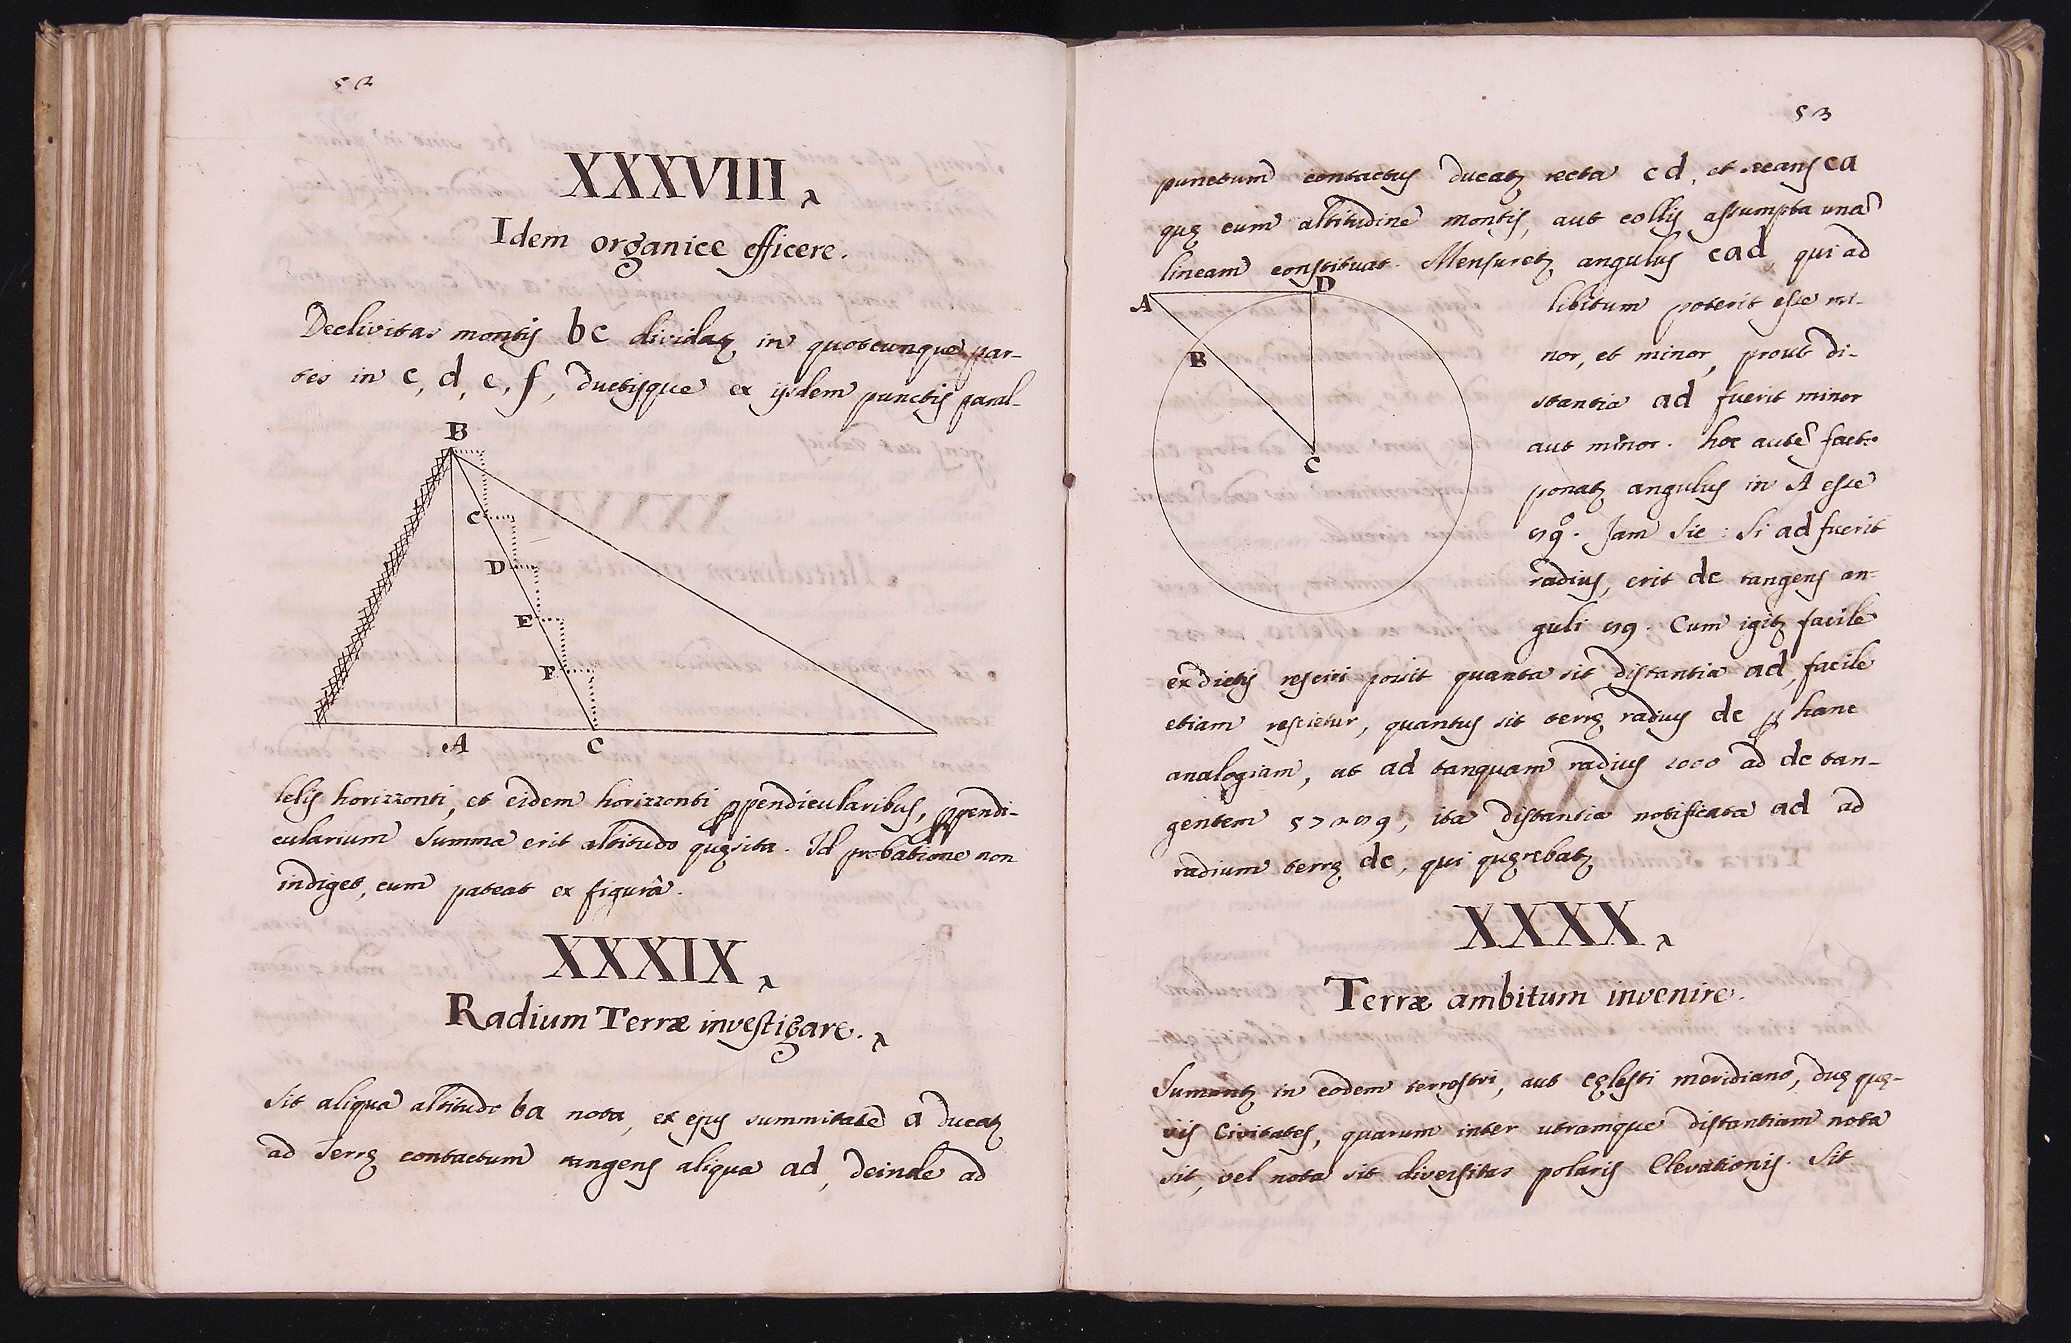 52
XXXVIII
Idem organice efficere.
Declivitas montis bc dividatʒ in quotcunque par-
tes in c, d, e, f, ductisque ex ijsdem punctis paral-
B
C
D
E
F
A
C
lelis horizzonti, et eidem horizzonti ꝑpendicularibus, ꝑpendi-
cularium summa erit altitudo quęsita. Id probatione non
indiget, cum pateat ex figurâ.
XXXIX
Radium Terræ investigare.
Sit aliqua altitudo ba nota, ex ejus summitate a ducatʒ
ad Terrę contactum tangens aliqua ad, deinde ad
53
punctum contactus ducatʒ recta cd, et secans ca
quę cum altitudine montis, aut collis assumpta unā
lineam constituat. Mensuretʒ angulus cad qui ad
A
D
B
C
libitum poterit esse mi-
nor, et minor, prout di-
stantia ad fuerit minor
aut minor. hoc autē facto
ponatʒ angulus in A esse
Jam sic: Si ad fuerit
radius, erit dc tangens an-
guli Cum igitʒ facile
ex dictis resciri possit quanta sit distantia ad, facile
etiam rescietur, quantus sit terrę radius dc ꝑ hanc
analogiam, ut ad tanquam radius 1000 ad dc tan-
gentem ita distantia notificata ad ad
radium terrę dc, qui quęrebatʒ
XXXX
Terræ ambitum invenire.
Sumantʒ in eodem terrestri, aut cęlesti meridiano, duę quę-
vis Civitates, quarum inter utramque distantiam nota
sit, vel nota sit diversitas polaris Elevationis. Sit